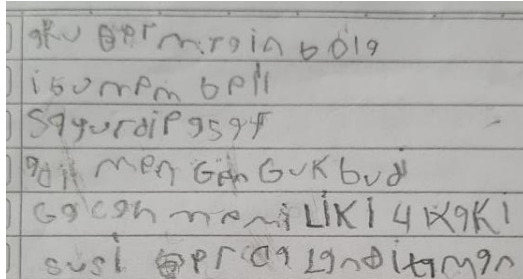 aku bermrain bola
ibu mem beli
Sayurdipasar
adi men Gen Guk budi
Gacah memiLiKi 4 KaKi
susi berca Landitaman